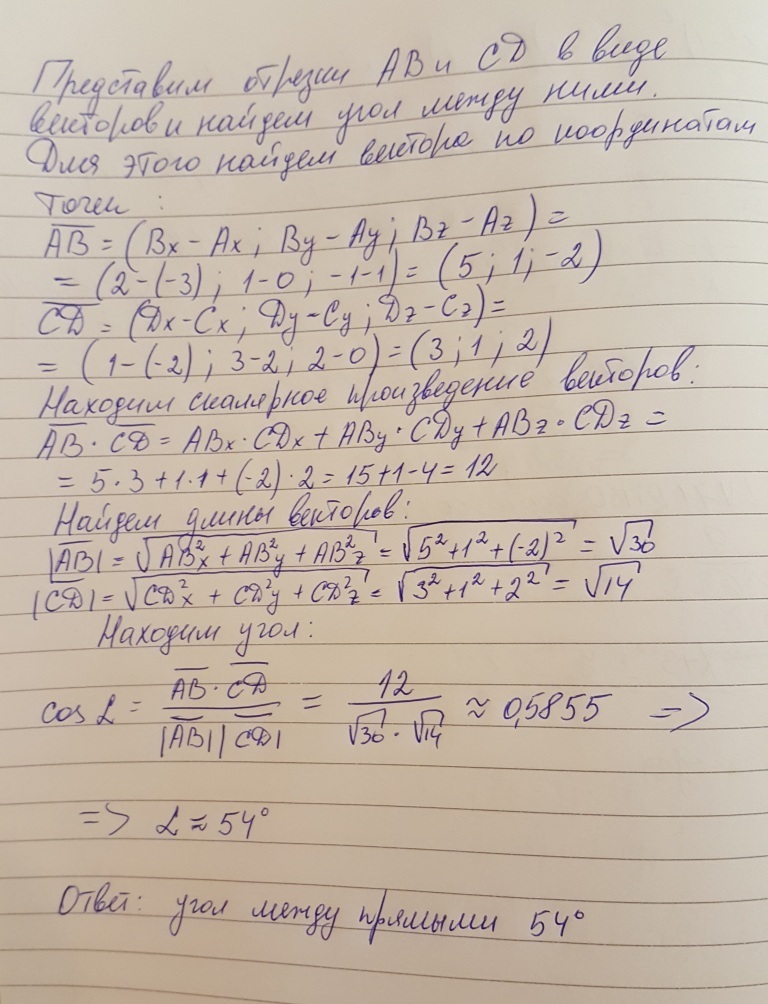 Представим отрезки AB и CD в виде
векторов и найдем угол между ними.
Для этого найдем вектора по координатам
точек :
A̅B̅ = (Bx − Ax ; By − Ay ; Bz − Az) =
= (2−(−3) ; 1−0 ; −1−1) = (5 ; 1 ; −2)
C̅D̅ = (Dx−Cx ; Dy−Cy ; Dz−Cz) =
= (1−(−2) ; 3−2 ; 2−0) = (3 ; 1 ; 2)
Находим скалярное произведение векторов:
A̅B̅ · C̅D̅ = ABx · CDx + ABy · CDy + ABz · CDz =
= 5·3 + 1·1 + (−2)·2 = 15+1−4 = 12
Найдем длины векторов:
|A̅B̅| = √(AB²x + AB²y + AB²z) = √(5²+1²+(−2)²) = √30
|C̅D̅| = √(CD²x + CD²y + CD²z) = √(3²+1²+2²) = √14
Находим угол:
cos α = A̅B̅ · C̅D̅ / |A̅B̅| |C̅D̅| = 12 / √30 · √14 ≈ 0,5855 =>
=> α ≈ 54°
Ответ: угол между прямыми 54°